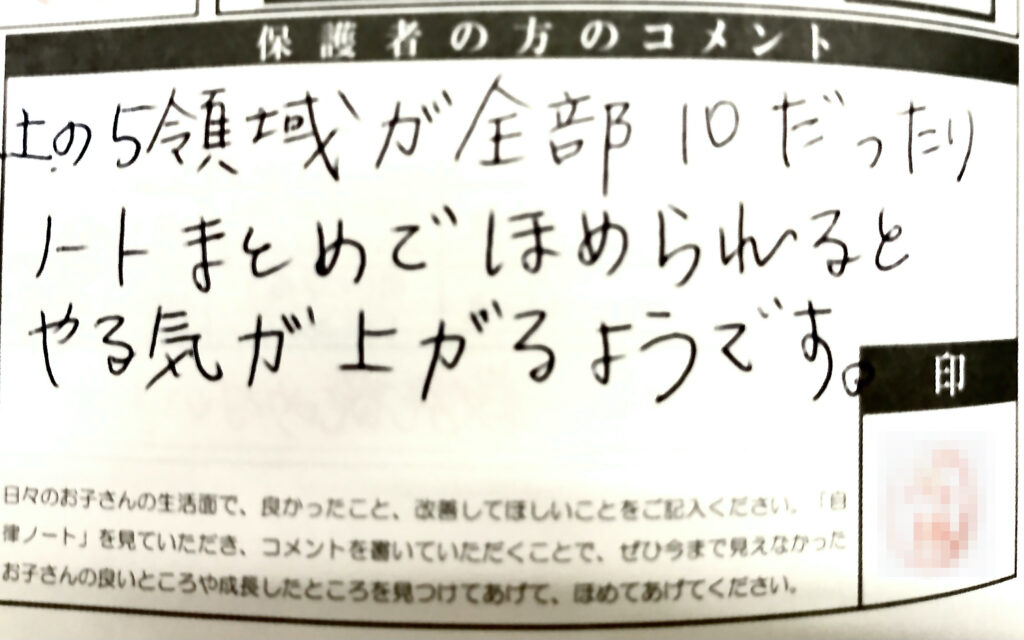 保護者の方のコメント
上の5領域が全部10だったり
ノートまとめでほめられると
やる気が上がるようです。
印
日々のお子さんの生活面で、良かったこと、改善してほしいことをご記入ください。「自
律ノート」を見ていただき、コメントを書いていただくことで、ぜひ今まで見えなかった
お子さんの良いところや成長したところを見つけてあげて、ほめてあげてください。